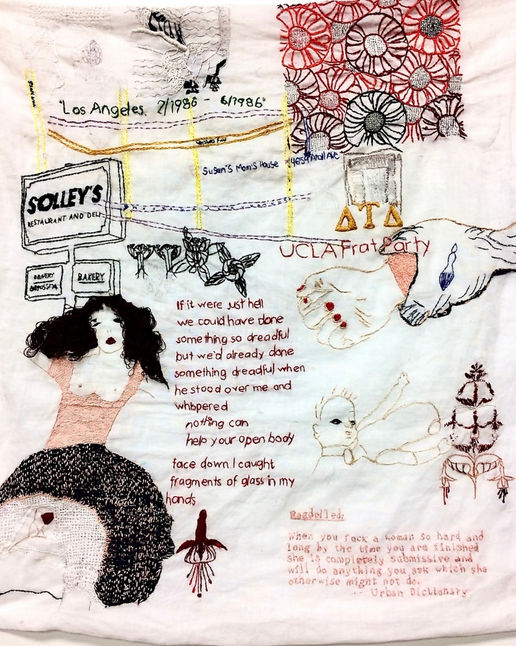 "Los Angeles 2/1986 - 6/1986"
Susan's Mom's House
SOLLEY'S
RESTAURANT AND DELI
BAKERY
ΔΤΔ
UCLA Frat Party
If it were just hell
we could have done
something so dreadful
but we'd already done
something dreadful when
he stood over me and
whispered
nothing can
help your open body
face down I caught
fragments of glass in my
hands
Ragdolled:
When you fuck a woman so hard and
long by the time you are finished
she is completely submissive and
will do anything you ask which she
otherwise might not do.
-- Urban Dictionary